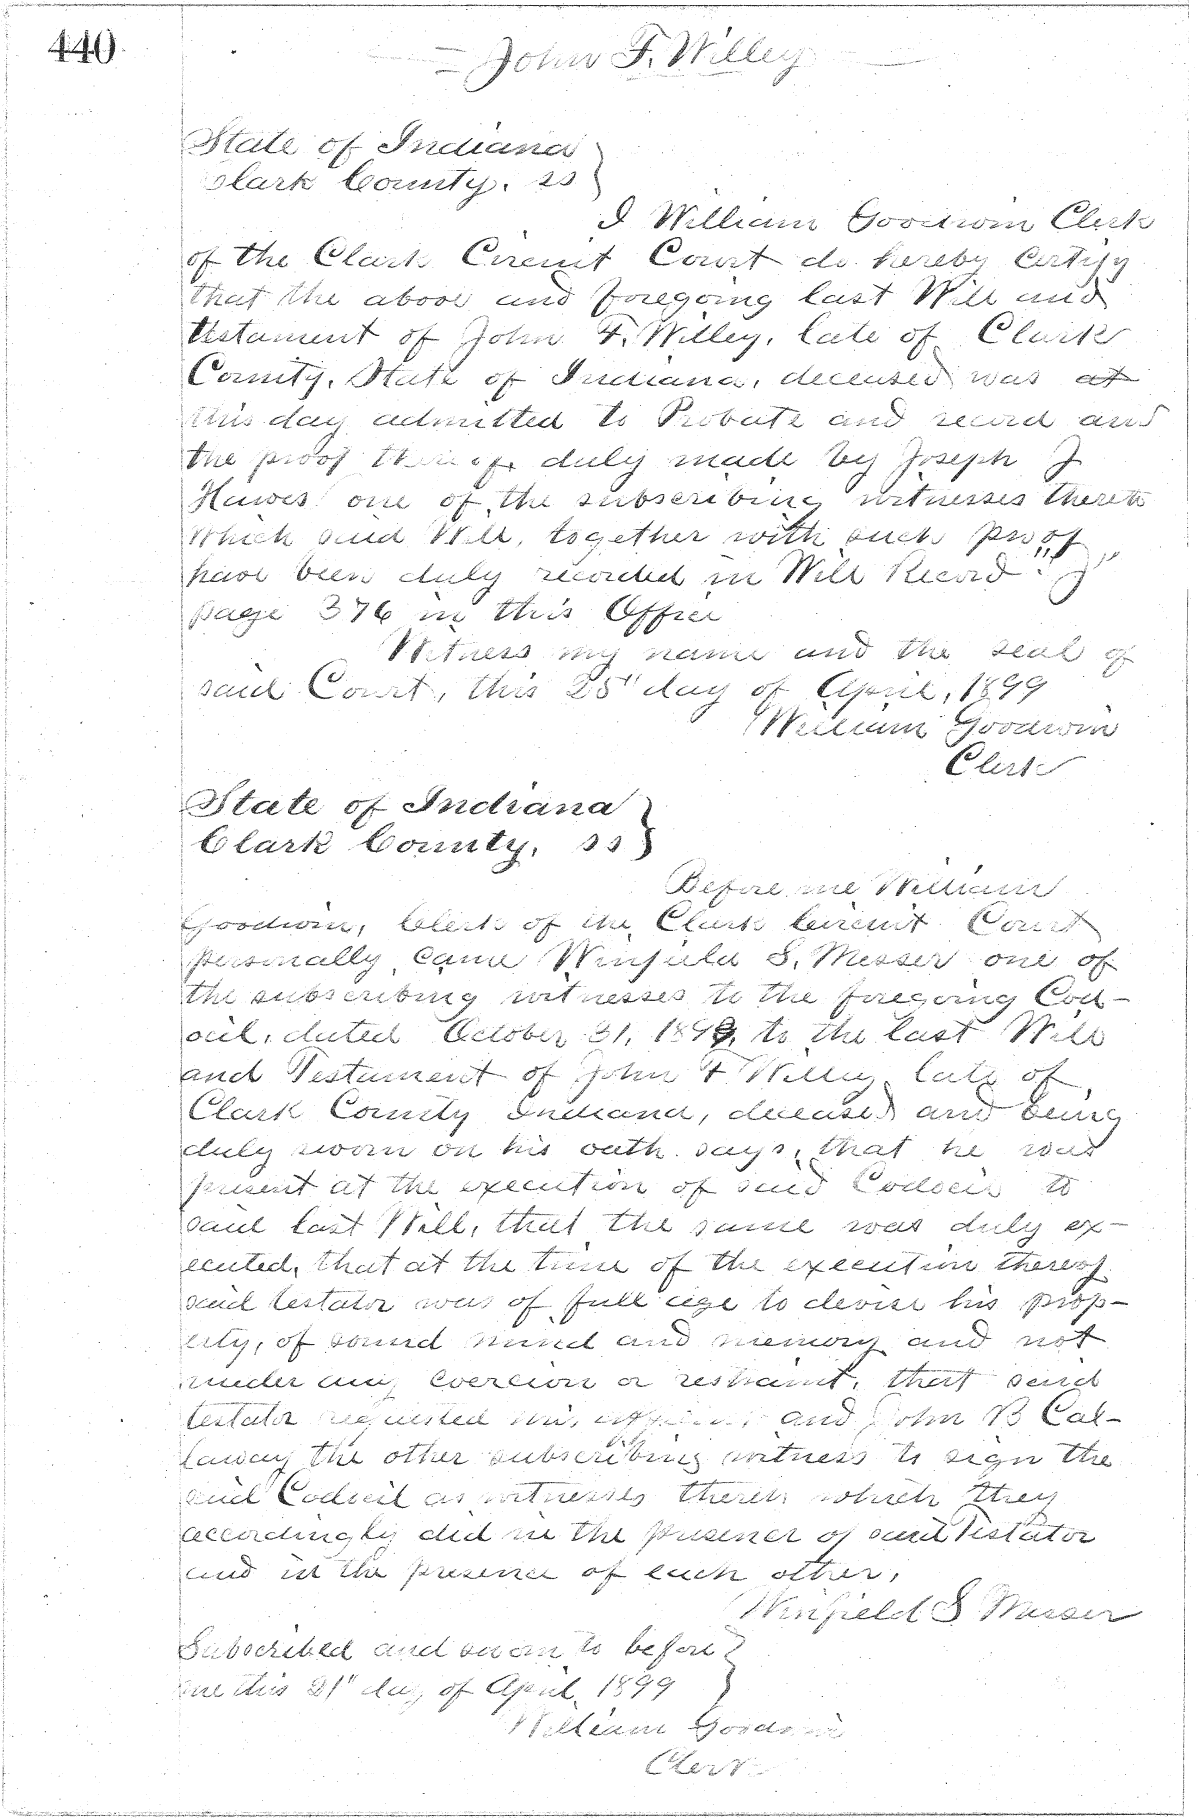 440
John F. Willey
State of Indiana
Clark County. ss
I William Goodwin Clerk
of the Clark Circuit Court do hereby certify
that the above and foregoing last Will and
testament of John F. Willey, late of Clark
County, State of Indiana, deceased was at
this day admitted to Probate and record and
the proof thereof duly made by Joseph J
Hawes one of the subscribing witnesses thereto
which said Will, together with such proof
have been duly recorded in Will Record "J"
page 376 in this Office
Witness my name and the seal of
said Court, this 25" day of April, 1899
William Goodwin
Clerk
State of Indiana
Clark County, ss
Before me William
Goodwin, Clerk of the Clark Circuit Court
personally came Winfield S. Messer one of
the subscribing witnesses to the foregoing Cod-
icil, dated October 31, to the last Will
and Testament of John F Willey late of
Clark County Indiana, deceased and being
duly sworn on his oath says, that he was
present at the execution of said Codicil to
said last Will, that the same was duly ex-
ecuted, that at the time of the execution thereof
said testator was of full age to devise his prop-
erty, of sound mind and memory and not
under any coercion or restraint, that said
testator requested this affiant and John B Cal-
laway the other subscribing witness to sign the
said Codicil as witnesses thereto which they
accordingly did in the presence of said Testator
and in the presence of each other,
Winfield S Messer
Subscribed and sworn to before
me this 21" day of April 1899
William Goodwin
Clerk